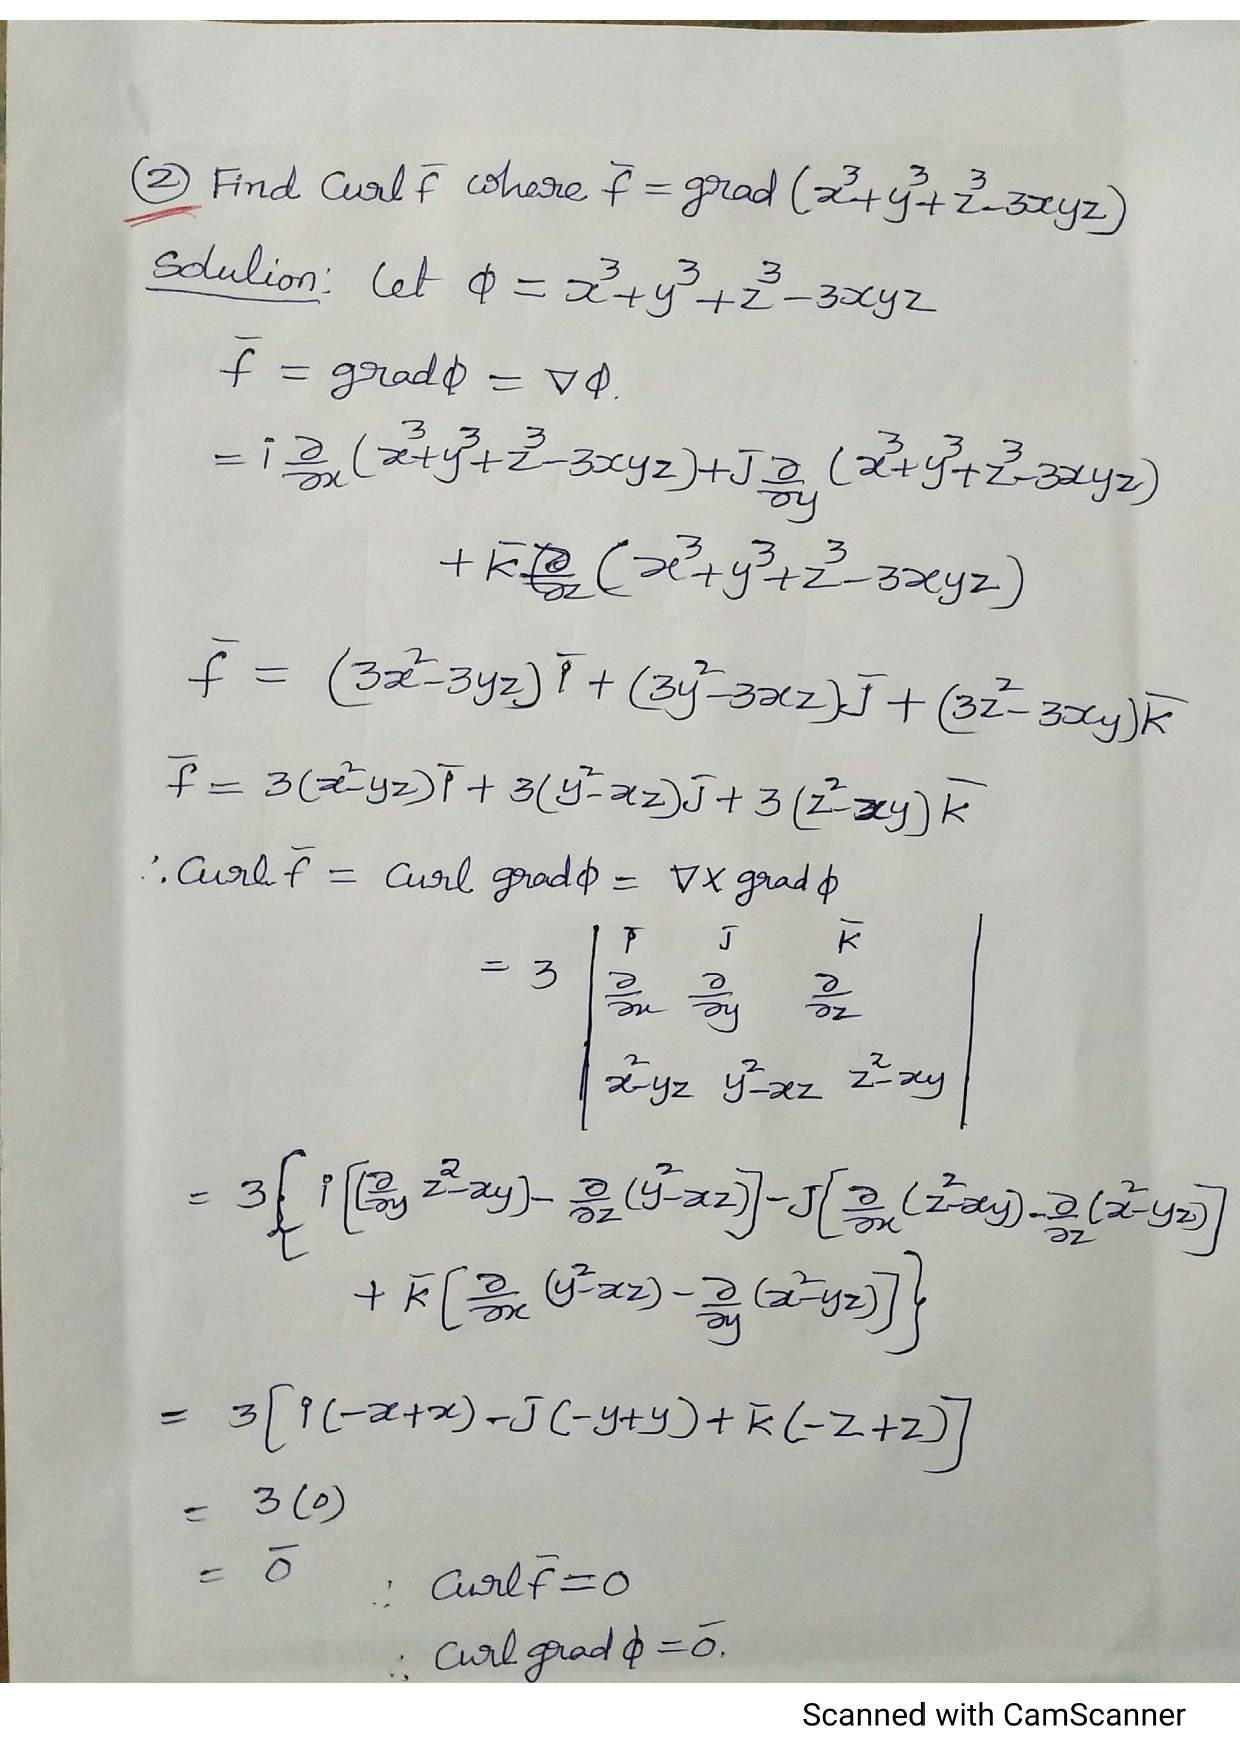 (2) Find Curl f̄ where f̄ = grad (x³+y³+z³-3xyz)
Solution: Let ϕ = x³+y³+z³-3xyz
f̄ = gradϕ = ∇ϕ.
= i ∂/∂x (x³+y³+z³-3xyz) + j̄ ∂/∂y (x³+y³+z³-3xyz)
+ k̄ ∂/∂z (x³+y³+z³-3xyz)
f̄ = (3x²-3yz) ī + (3y²-3xz) j̄ + (3z²-3xy) k̄
f̄ = 3(x²-yz) ī + 3(y²-xz) j̄ + 3(z²-xy) k̄
∴ Curl f̄ = Curl gradϕ = ∇× gradϕ
= 3 | ī j̄ k̄ |
| ∂/∂x ∂/∂y ∂/∂z |
| x²-yz y²-xz z²-xy |
= 3{ i [(∂/∂y z²-xy) - ∂/∂z (y²-xz)] - j [∂/∂x (z²-xy) - ∂/∂z (x²-yz)]
+ k̄ [∂/∂x (y²-xz) - ∂/∂y (x²-yz)]}
= 3[i(-x+x) - j̄(-y+y) + k̄(-z+z)]
= 3(0)
= 0̄ ∴ Curl f̄ = 0
∴ Curl grad ϕ = 0̄.
Scanned with CamScanner